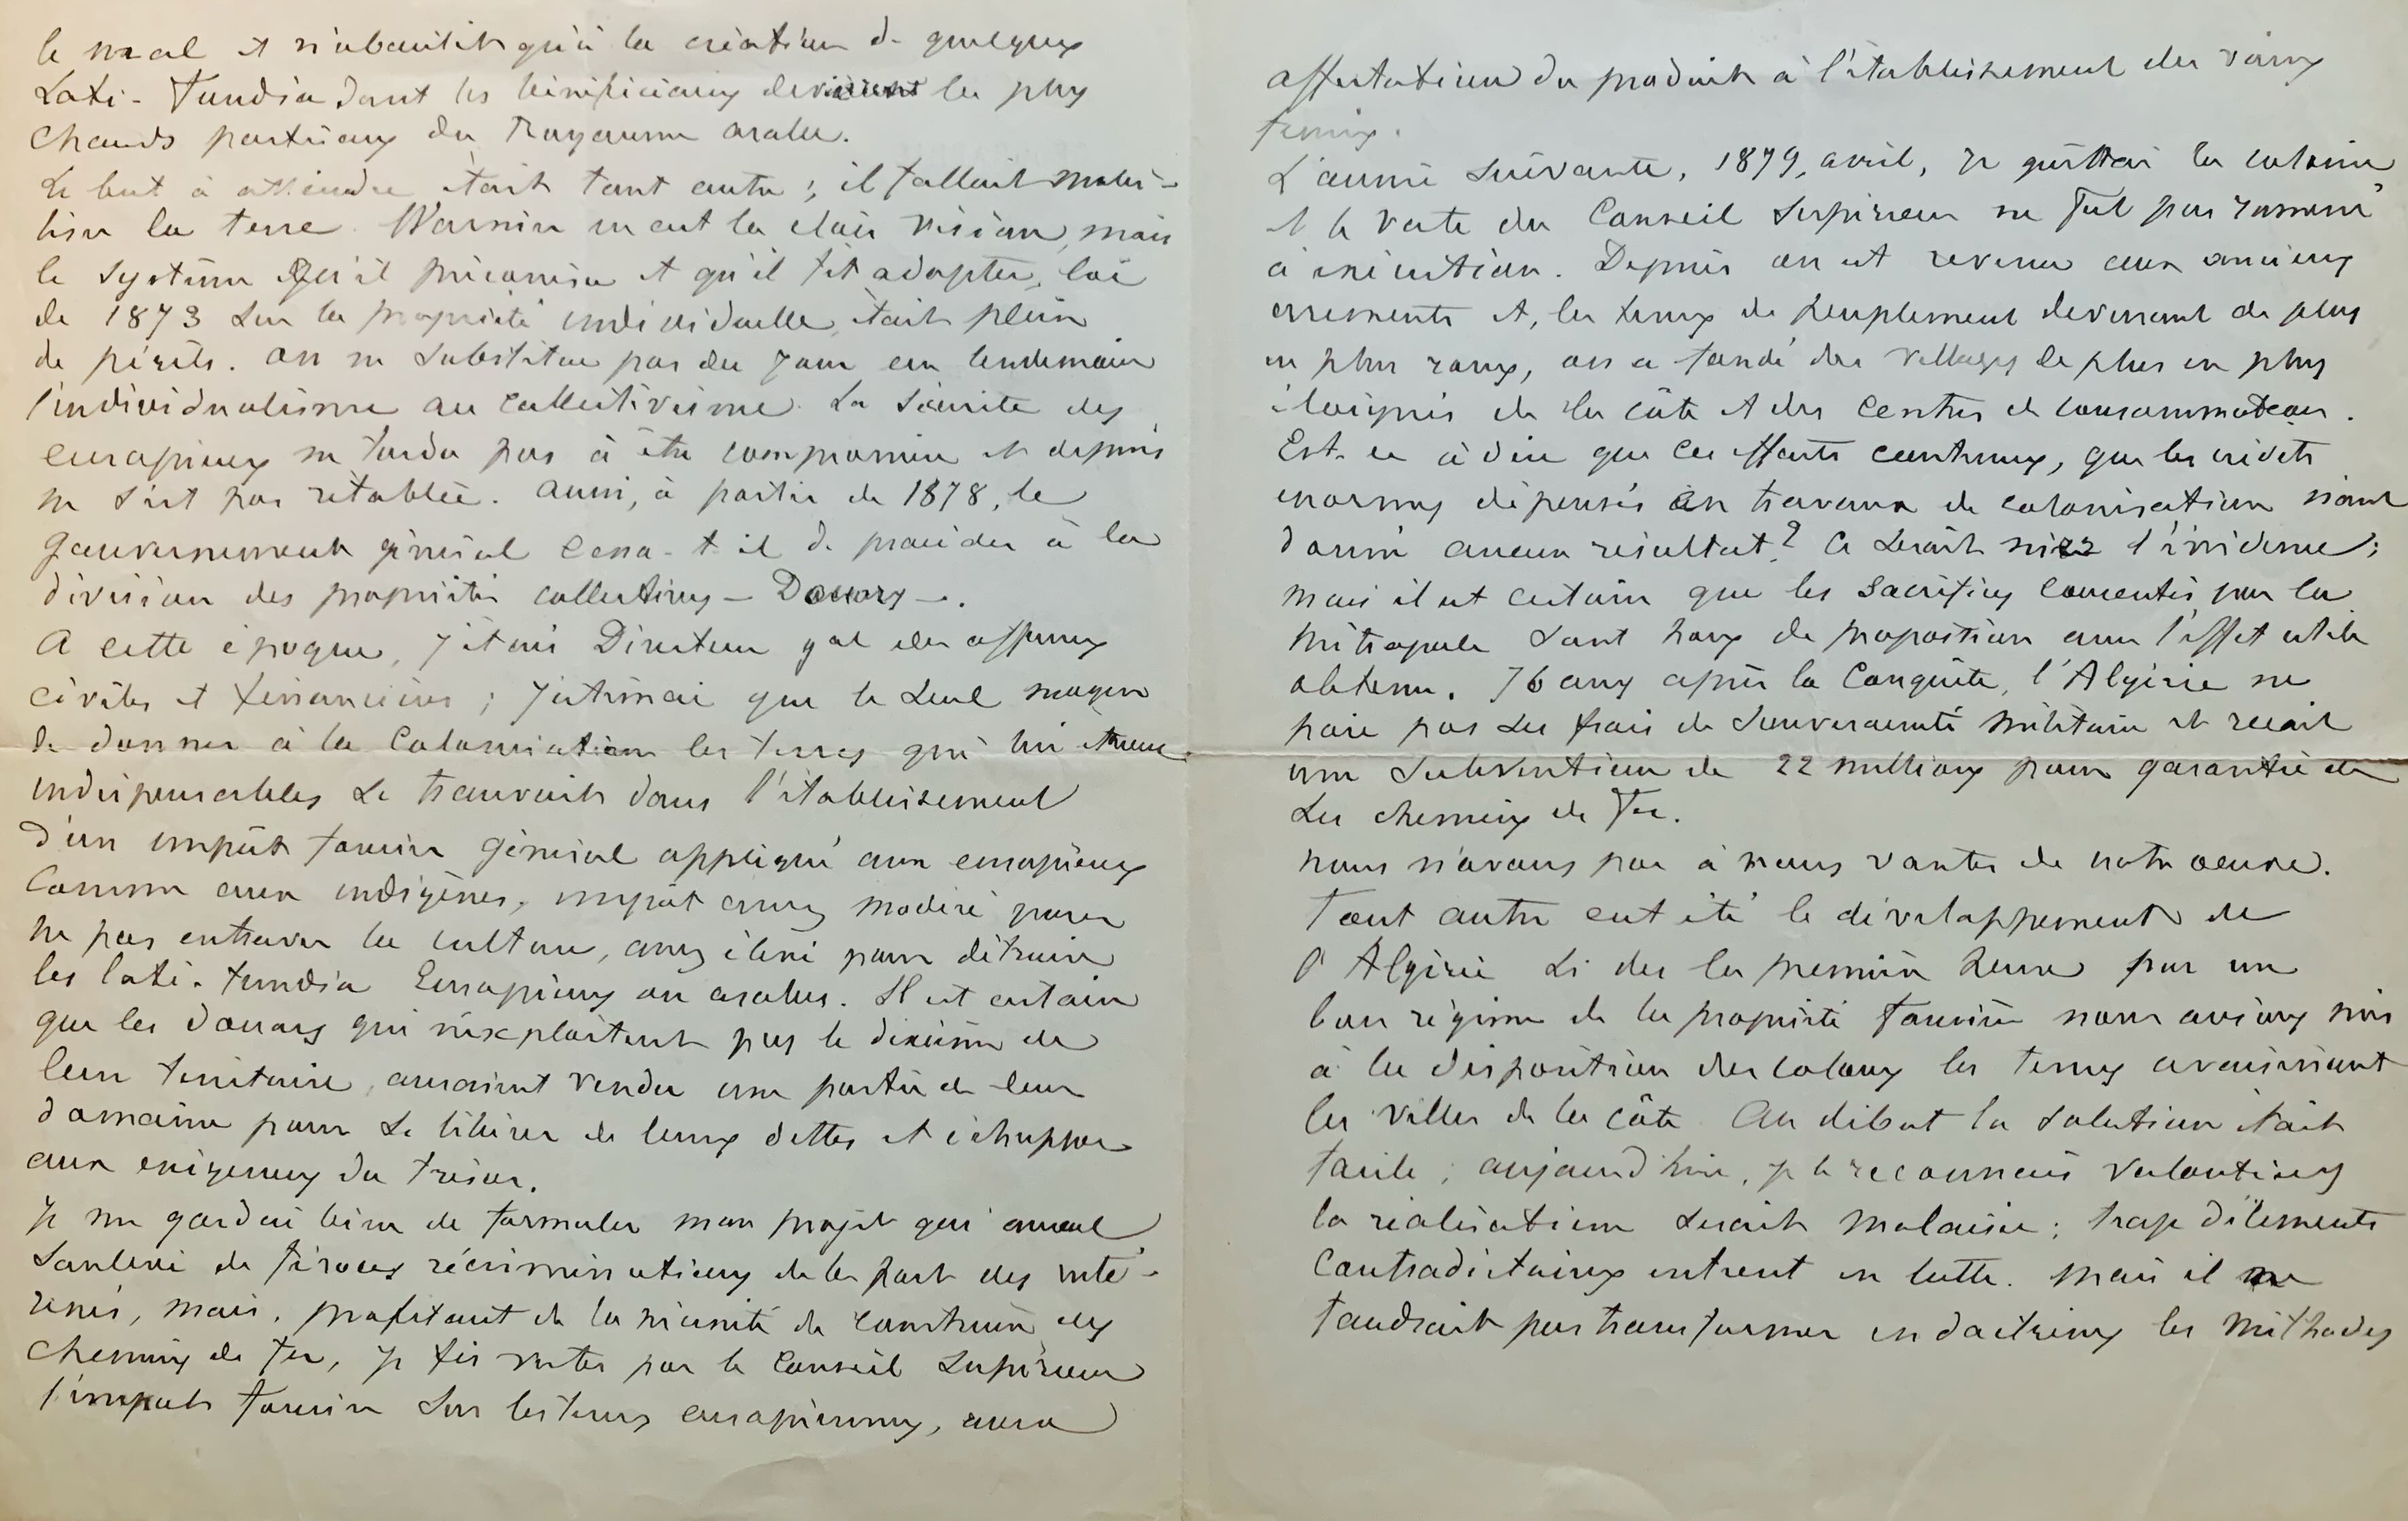 le mal et n'aboutit qu'à la création de quelques
Lati-Fundia dont les bénéficiaires devinrent les plus
chauds partisans du Royaume arabe.
Le but à atteindre était tout autre ; il fallait mobi-
liser la terre. Warnier en eut la claire vision, mais
le système qu'il préconisa et qu'il fit adopter, loi
de 1873 sur la propriété individuelle, était plein
de périls. On ne substitue pas du jour au lendemain
l'individualisme au collectivisme. La sécurité des
européens ne tarda pas à être compromise et depuis
ne s'est pas rétablie. Aussi, à partir de 1878, le
Gouvernement général cessa-t-il de procéder à la
division des propriétés collectives — Douars —.
A cette époque, j'étais Directeur gal des affaires
civiles et financières ; j'estimai que le seul moyen
de donner à la Colonisation les terres qui lui étaient
indispensables se trouvait dans l'établissement
d'un impôt foncier général appliqué aux européens
comme aux indigènes, impôt assez modéré pour
ne pas entraver la culture, assez élevé pour détruire
les lati-fundia Européens ou arabes. Il est certain
que les douars qui n'exploitent pas le dixième de
leur territoire, auraient vendu une partie de leur
domaine pour se libérer de leurs dettes et échapper
aux exigences du trésor.
Je me gardai bien de formuler mon projet qui aurait
soulevé de féroces récriminations de la part des inté-
ressés, mais, profitant de la nécessité de construire des
chemins de fer, je fis voter par le Conseil Supérieur
l'impôt foncier sur les terres européennes, avec
affectation du produit à l'établissement des voies
ferrées.
L'année suivante, 1879, avril, je quittai la colonie
et le vote du Conseil Supérieur ne fut pas ramené
à exécution. Depuis on est revenu aux anciens
errements et, les terres de peuplement devenant de plus
en plus rares, on a fondé des villages de plus en plus
éloignés de la côte et des centres de consommation.
Est-ce à dire que ces efforts continus, que les crédits
énormes dépensés en travaux de colonisation n'ont
donné aucun résultat ? Ce serait nier l'évidence ;
mais il est certain que les sacrifices consentis par la
Métropole sont hors de proportion avec l'effet utile
obtenu. 76 ans après la Conquête, l'Algérie ne
paie pas ses frais de souveraineté militaire et reçoit
une subvention de 22 millions pour garantie de
ses chemins de fer.
nous n'avons pas à nous vanter de notre oeuvre.
Tout autre eut été le développement de
l'Algérie si dès la première heure par un
bon régime de la propriété foncière nous avions mis
à la disposition des colons les terres avoisinant
les villes de la côte. Au début la solution était
facile ; aujourd'hui, je le reconnais volontiers
la réalisation serait malaisée ; trop d'éléments
contradictoires entrent en lutte. Mais il ne
faudrait pas transformer en doctrines les méthodes